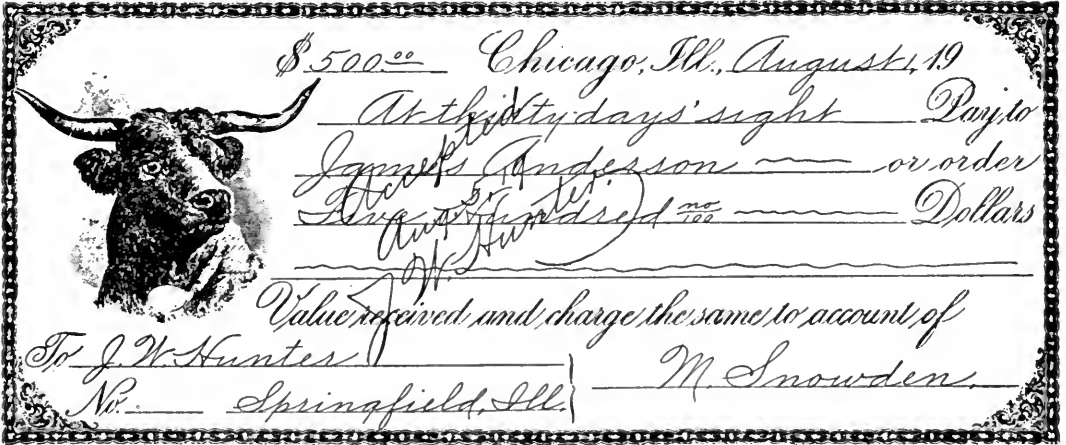 $ 500.00 Chicago, Ill., August 1, 19
At thirty days' sight Pay to
James Anderson or order
Five Hundred no/100 Dollars
Accepted
Aug. 5, 19
J. W. Hunter
Value received and charge the same to account of
To J. W. Hunter
M. Snowden.
No. Springfield, Ill.